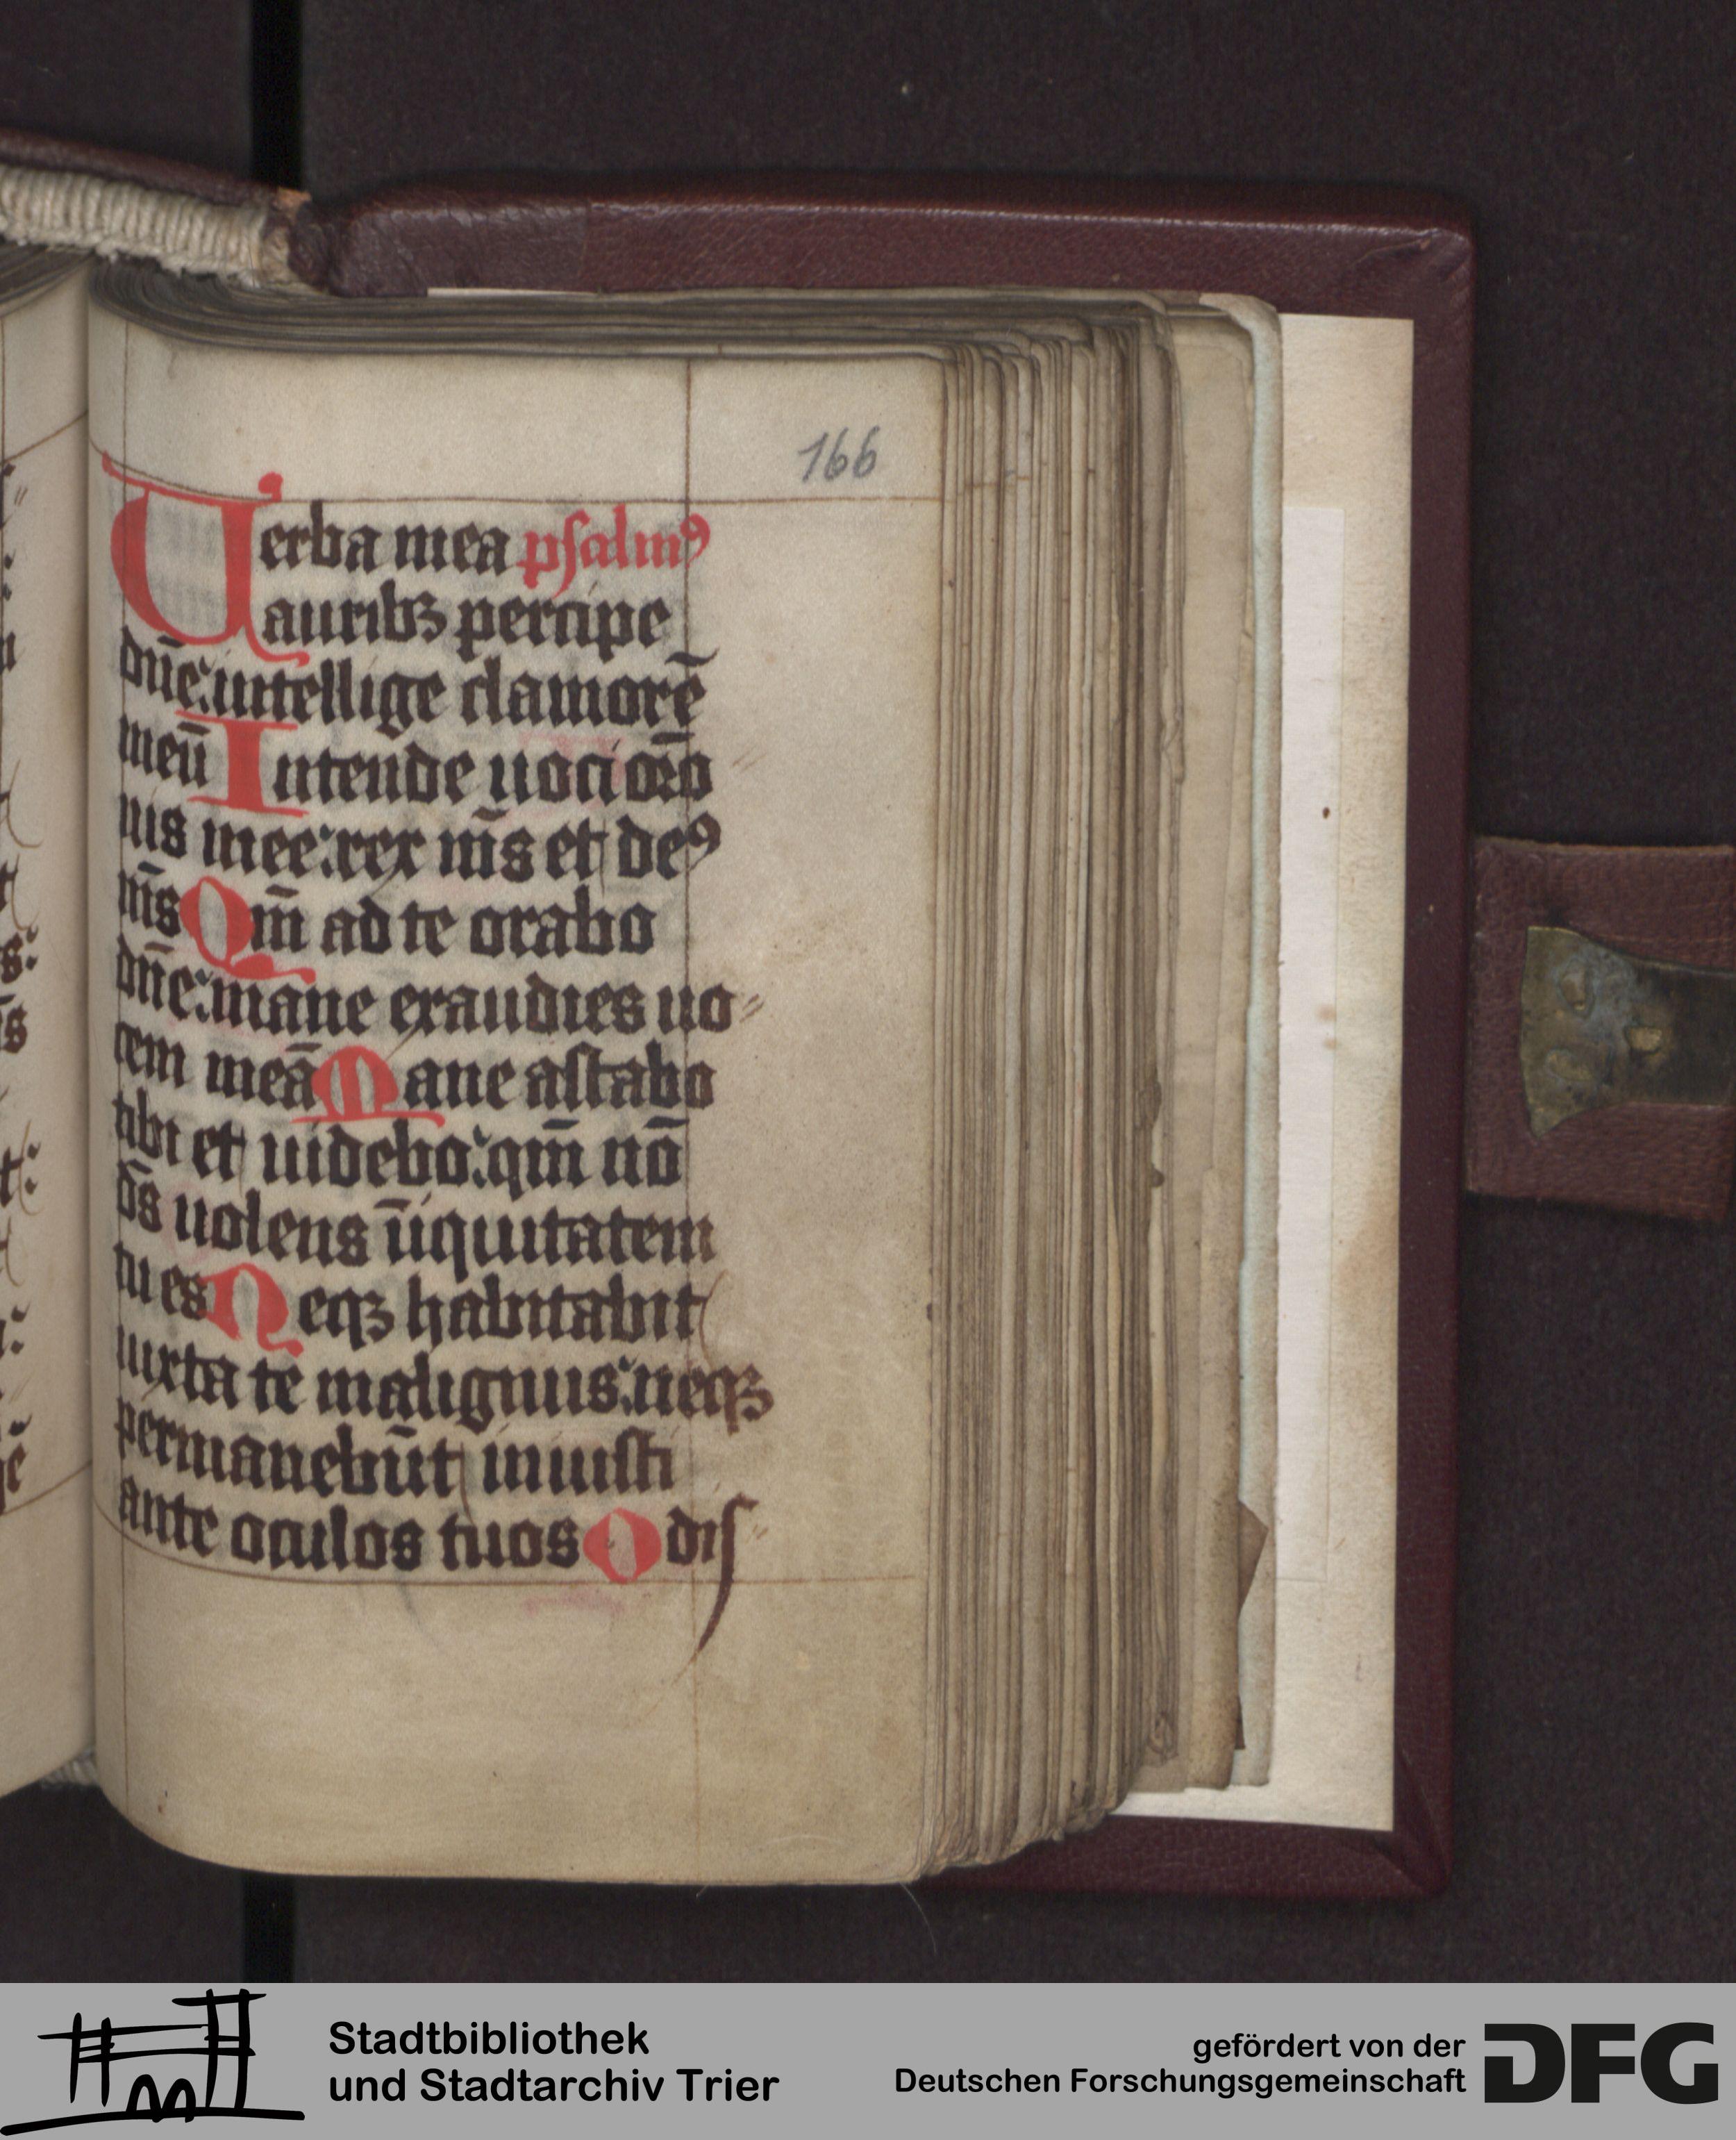 166
Verba mea psalmꝰ
auribꝫ percipe
dn̄e: intellige clamorē
meū Intende uoci or̄o
nis mee: rex m̄s et deꝰ
m̄s Qm̄ ad te orabo
dn̄e: mane exaudies uo
cem meā Mane astabo
tibi et uidebo: qm̄ nō
ds̄ uolens īiquitatem
tu es Neqꝫ habitabit
iuxta te malignus: neqꝫ
permanebūt iniusti
ante oculos tuos Odis
Stadtbibliothek
und Stadtarchiv Trier
gefördert von der
Deutschen Forschungsgemeinschaft
DFG